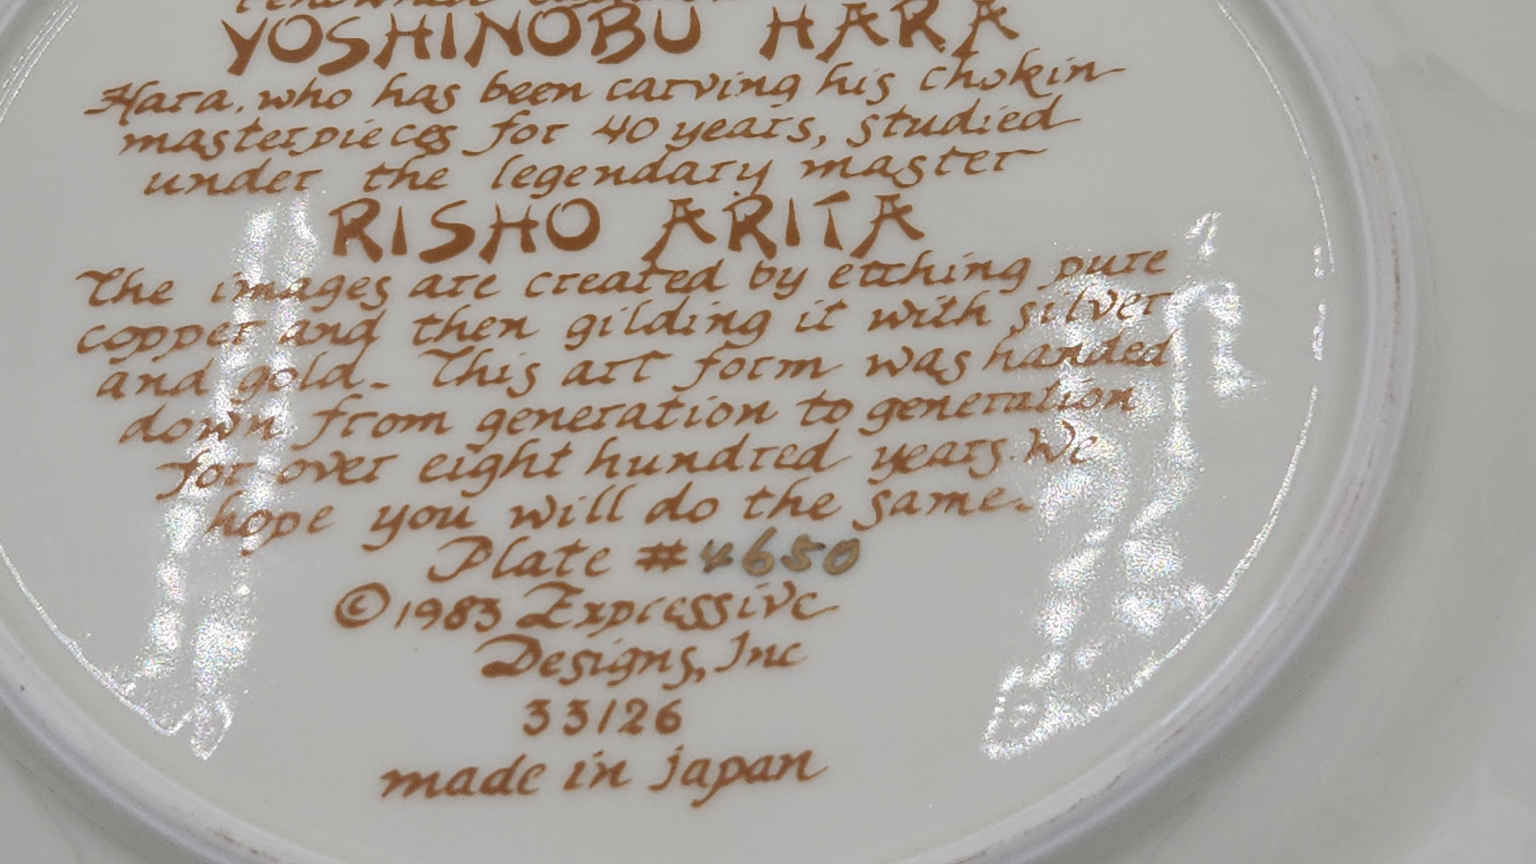 YOSHINOBU HARA
Hara, who has been carving his chokin
masterpieces for 40 years, studied
under the legendary master
RISHO ARITA
The images are created by etching pure
copper and then gilding it with silver
and gold. This art form was handed
down from generation to generation
for over eight hundred years. We
hope you will do the same.
Plate #4650
©1983 Expressive
Designs, Inc
33126
made in japan